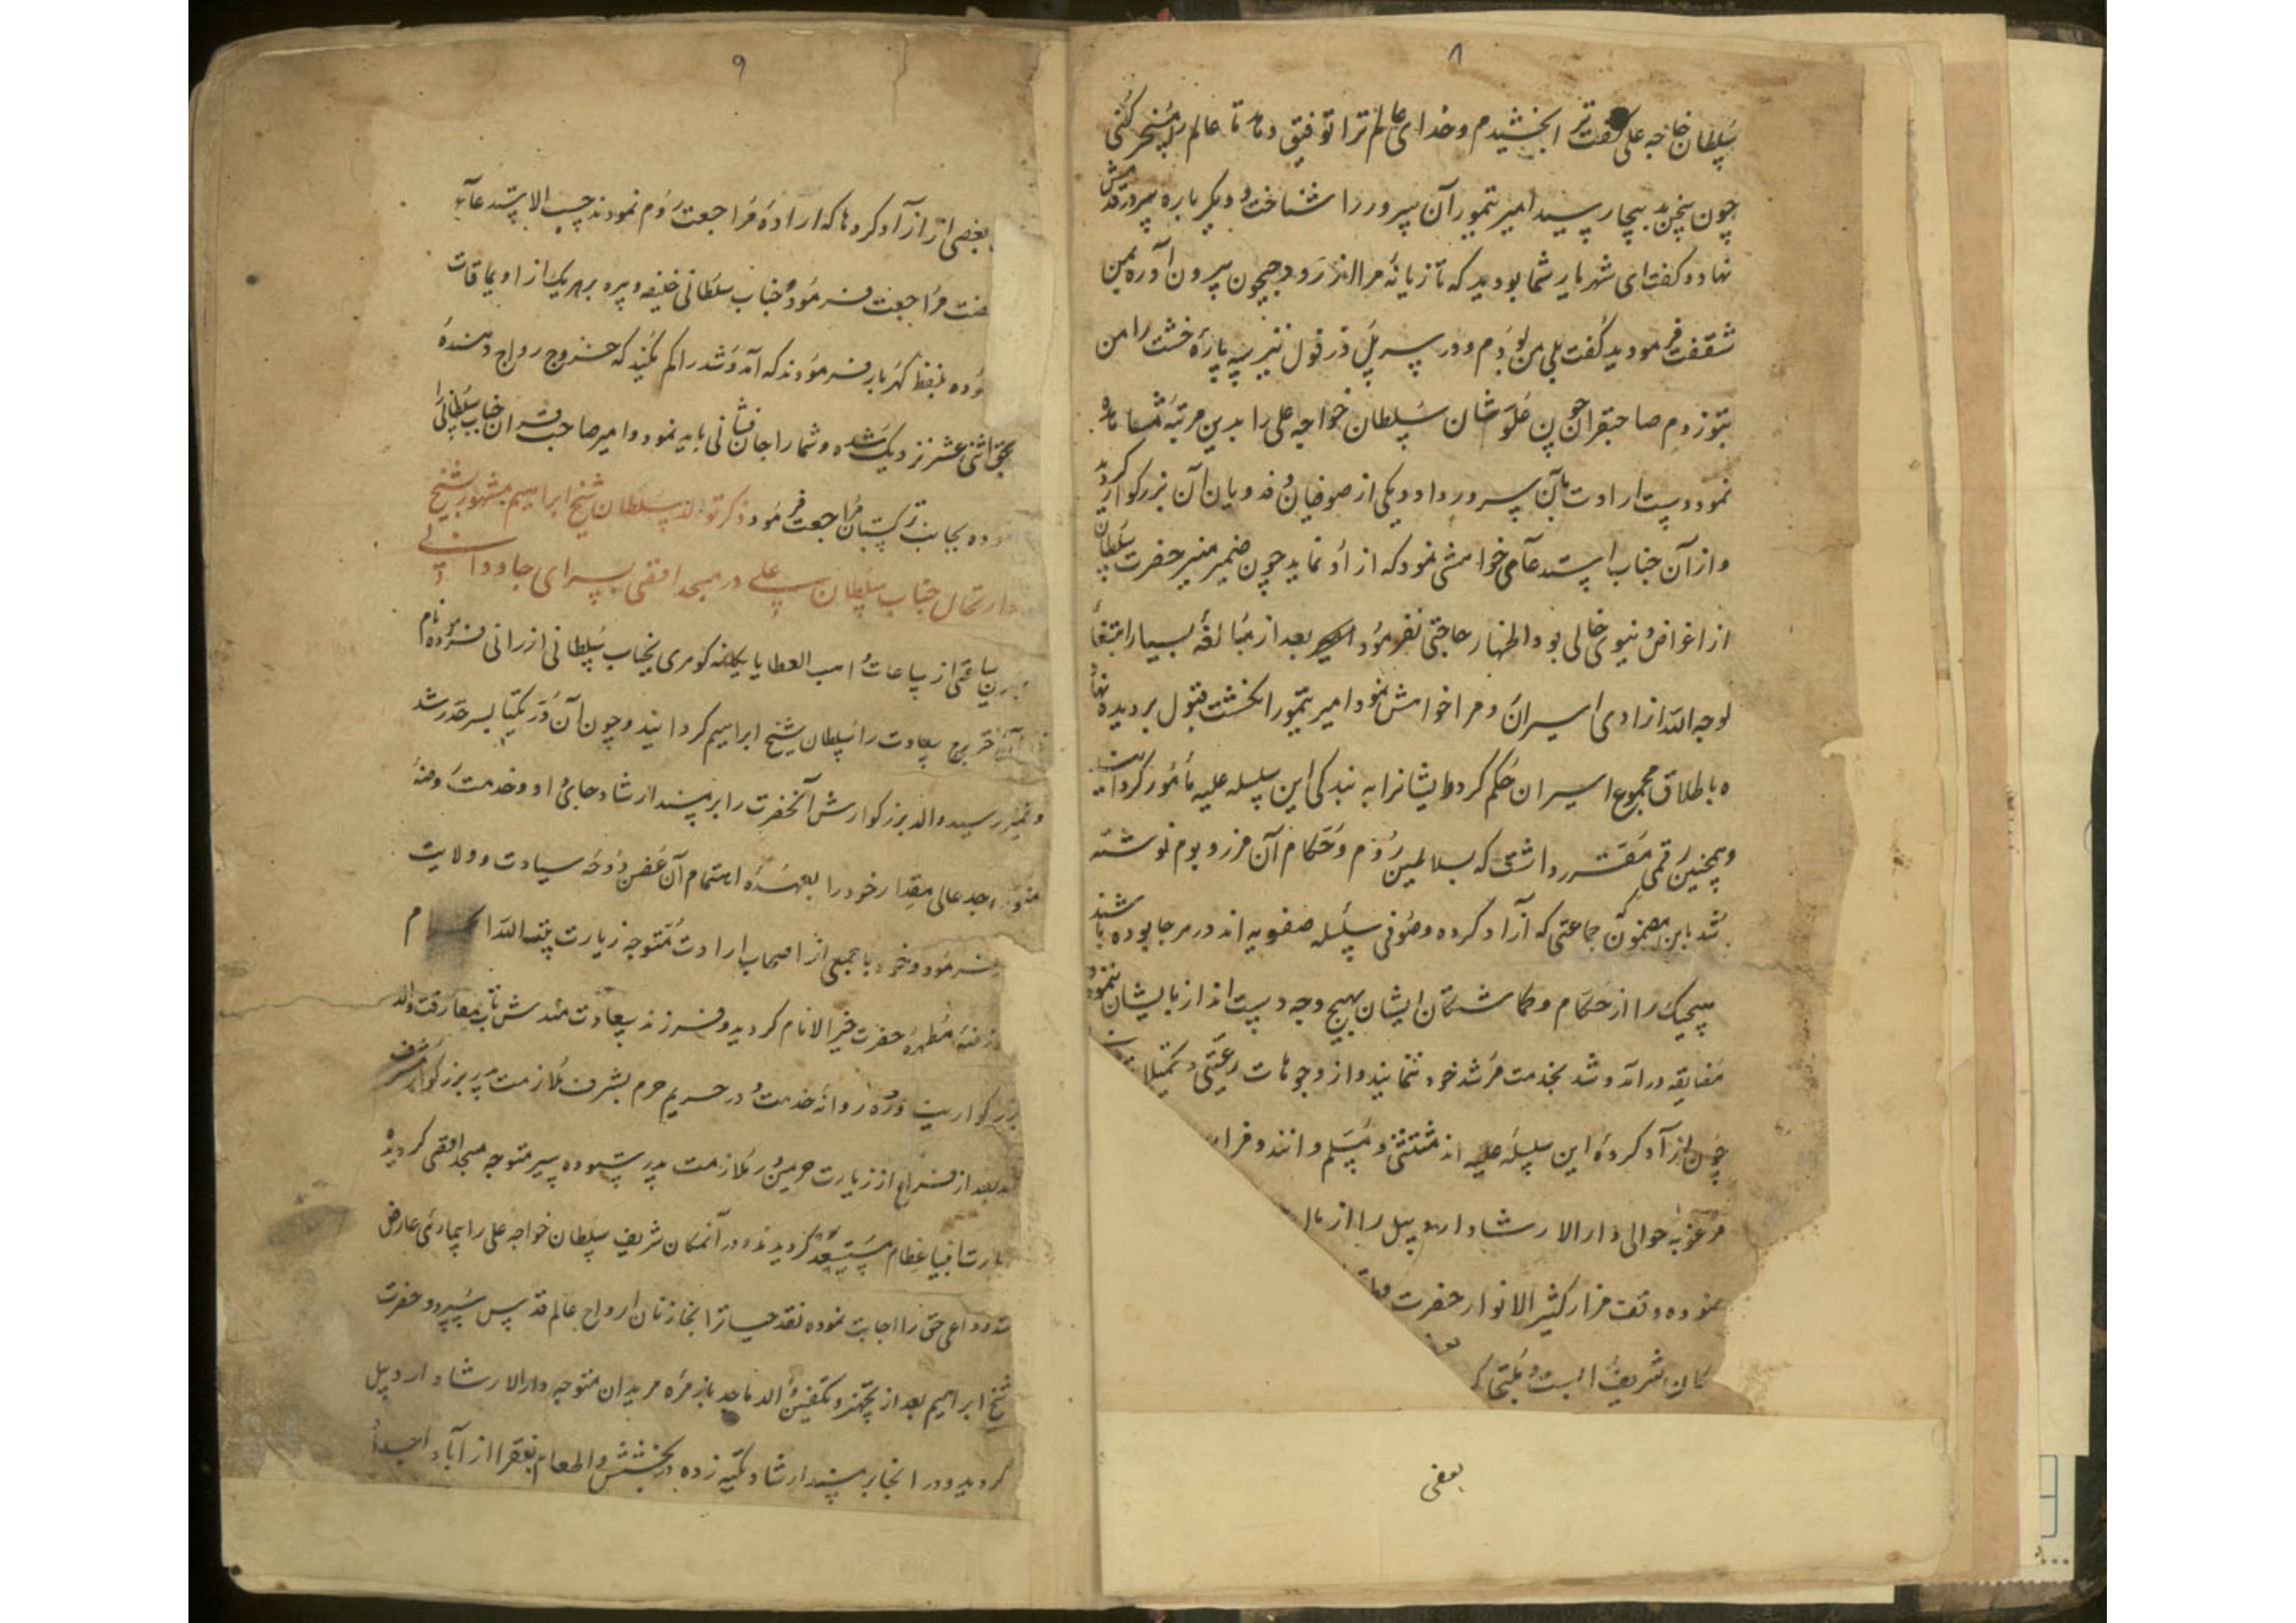 ۸
سلطان خاجه علی گفت ترا بخشیدم و خدای عالم ترا توفیق دهاد تا عالم را مسخر کنی
چون سخن بدینجا رسید امیر تیمور آن سرور را شناخت و دیگر باره سر در قدمش
نهاد و گفت ای شهریار شما بودید که تازیانهٔ مرا از رود جیحون بیرون آورده بمن
شفقت فرمودید گفت بلی من بودم و در سر پل دزفول نیز سه پارهٔ خشت را من
بتو زدم صاحبقران چون علو شان سلطان خواجه علی را بدین مرتبه مشاهده
نمود دست ارادت بآن سرور داد و یکی از صوفیان و فدویان آن بزرگوار گردید
و از آن جناب استدعای خواهشی نمود که از او نماید چون ضمیر منیر حضرت سلطان
از اغراض دنیوی خالی بود اظهار حاجتی نفرمود بعد از مبالغهٔ بسیار ابتغاء
لوجه الله آزادی اسیران روم را خواهش نمود امیر تیمور انگشت قبول بر دیده نهاد
ه باطلاق مجموع اسیران حکم کرد و ایشانرا به بندگی این سلسله علیه مأمور گردانید
و همچنین رقمی مقرر داشت که بسلاطین روم و حکام آن مرز و بوم نوشته
شد باین مضمون جماعتی که آزاد کرده و صوفی سلسله صفویه اند در هر جا بوده باشند
هیچیک را از حکام و گماشتگان ایشان بهیچ وجه دست انداز بایشان ننموده
مضایقه در آمد و شد بخدمت مرشد خود ننمایند و از وجوهات رعیتی و تحمیلا
چون آزاد کردهٔ این سلسله علیه اند مستثنی و مسلم دانند و قرا
مرغوبه حوالی دارالارشاد اردبیل را از ما
نموده وقف مزار کثیر الانوار حضرت
کان شریف است
بعضی
۹
بعضی از آزاد کردها که ارادهٔ مراجعت روم نمودند حسب الاستدعاء
رخصت مراجعت فرموده جناب سلطانی خلیفه و پیره بهر یک از اویماقات
وده بلفظ گهربار فرمودند که آمد و شد را کم نکنید که خروج رواج دهندهٔ
بحق اثنی عشر نزدیک شده و شما را جان فشانی باید نمود و امیر صاحب قران جناب سلطانی را
وده بجانب ترکستان مراجعت فرمود ذکر تولد سلطان شیخ ابراهیم مشهور بشیخ
و ارتحال جناب سلطان علی در مسجد اقصی بسرای جاودانی
ساعتی از ساعات واهب العطایا یگانه گوهری بجناب سلطانی ارزانی فرموده نام
آن اختر برج سعادت را سلطان شیخ ابراهیم گردانید و چون آن در یکتا بسر حد رشد
و تمیز رسید والد بزرگوارش آنحضرت را بر مسند ارشاد جای داد و خدمت روضهٔ
منوره جد عالی مقدار خود را بعهدهٔ اهتمام آن غصن دوحهٔ سیادت و ولایت
فرمود و خود با جمعی از اصحاب ارادت متوجه زیارت بیت الله الحرام
و روضهٔ مطهره حضرت خیر الانام گردید و فرزند سعادت مندش تاب مفارقت والد
بزرگوار نیاورده روانه خدمت و در حریم حرم بشرف ملازمت پدر بزرگوار مشرف
شد بعد از فراغ از زیارت حرمین در ملازمت پدر ستوده سیر متوجه مسجد اقصی گردیده
بزیارت انبیا عظام مستسعد گردیدند و در آنمکان شریف سلطان خواجه علی را بیماری عارض
شد و داعی حق را اجابت نموده نقد حیاترا بخازنان ارواح عالم قدس سپرد و حضرت
شیخ ابراهیم بعد از تجهیز و تکفین والد ماجد با زمرهٔ مریدان متوجه دارالارشاد اردبیل
گردید و در انجا بر مسند ارشاد تکیه زده در بخشش و اطعام فقرا از آبا و اجداد